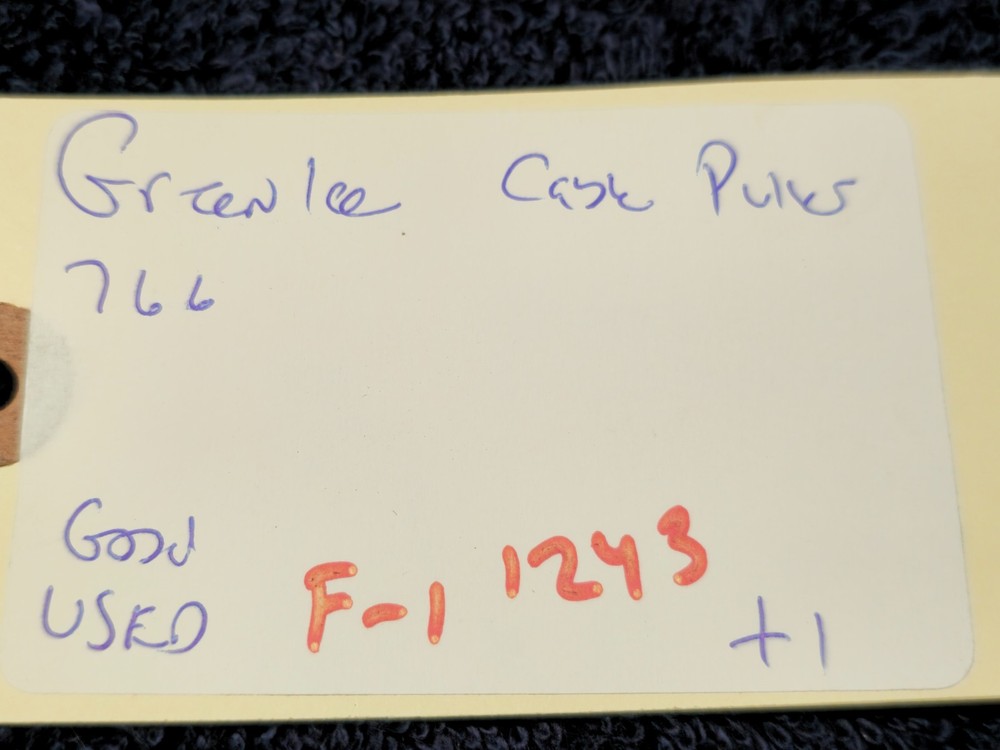 Greenlee Cable Puller
766
Good
USED F-1 1243 +1